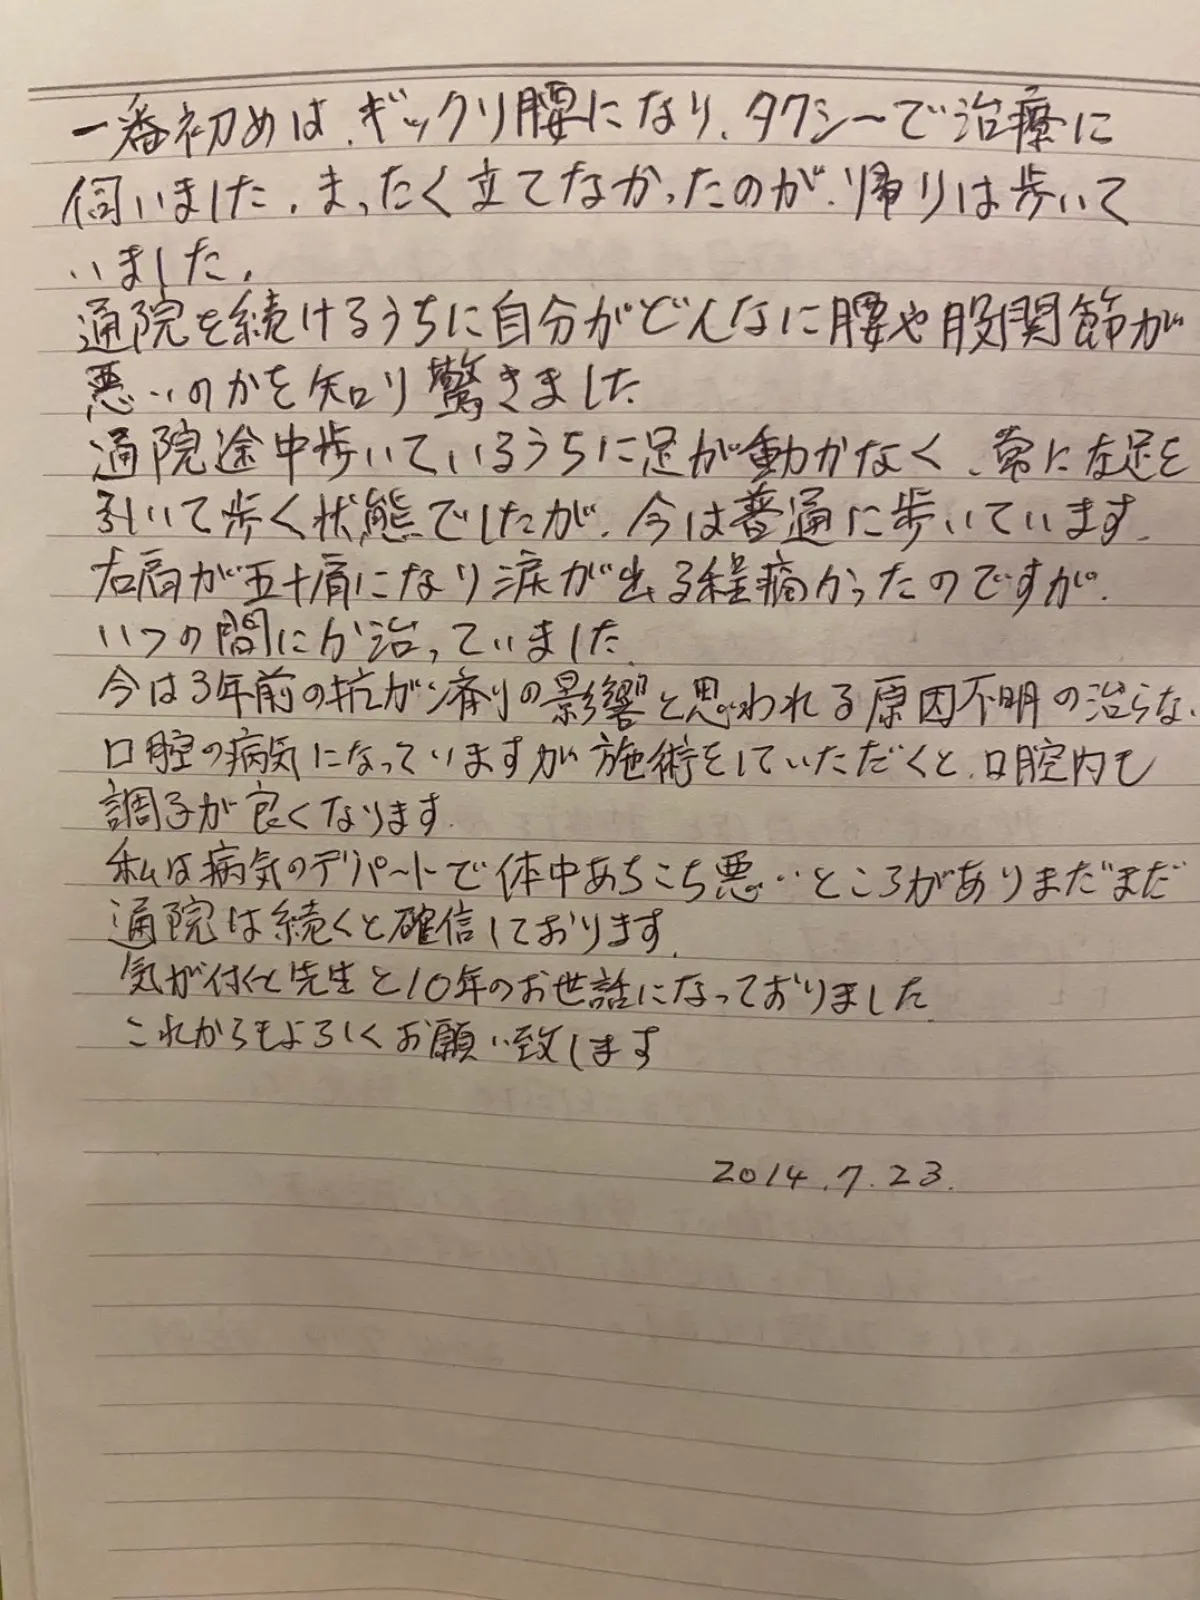 一番初めは、ギックリ腰になり、タクシーで治療に
伺いました。まったく立てなかったのが、帰りは歩いて
いました。
通院を続けるうちに自分がどんなに腰や股関節が
悪いのかを知り驚きました
通院途中歩いているうちに足が動かなく、常に左足を
引いて歩く状態でしたが、今は普通に歩いています。
右肩が五十肩になり涙が出る程痛かったのですが、
いつの間にか治っていました。
今は3年前の抗ガン剤の影響と思われる原因不明の治らない
口腔の病気になっていますが施術をしていただくと、口腔内も
調子が良くなります。
私は病気のデパートで体中あちこち悪いところがありまだまだ
通院は続くと確信しております。
気が付くと先生と10年のお世話になっておりました
これからもよろしくお願い致します
2014.7.23.